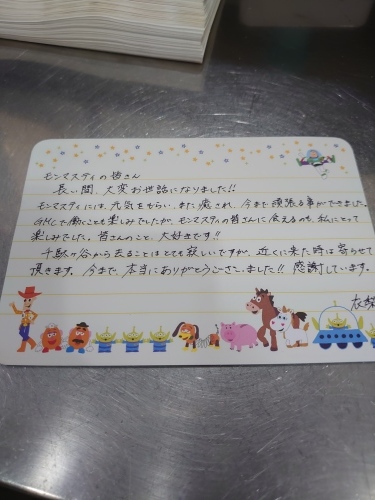 モンマスティの皆さん
長い間、大変お世話になりました!!
モンマスティには、元気をもらい、また癒され、今まで頑張る事ができました。
GMCで働くことも楽しみでしたが、モンマスティの皆さんに会えるのも、私にとって
楽しみでした。皆さんのこと、大好きです!!
千駄ヶ谷から去ることはとても寂しいですが、近くに来た時は寄らせて
頂きます。今まで、本当にありがとうございました!! 感謝しています。